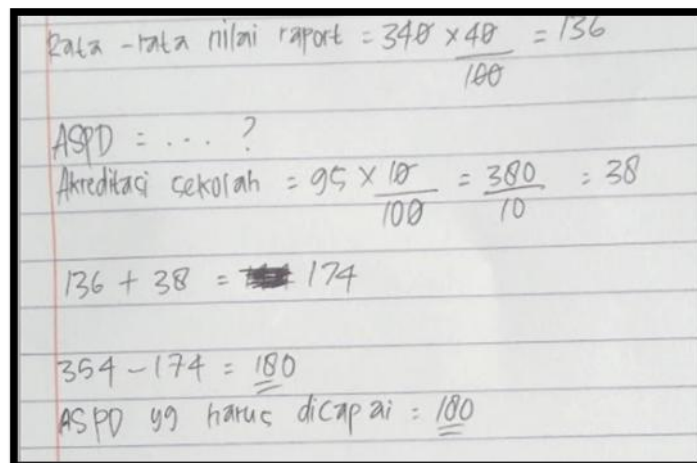 Rata-rata nilai raport = 340 × 40/100 = 136
ASPD = .... ?
Akreditasi sekolah = 95 × 10/100 = 380/10 = 38
136 + 38 = 174
354 - 174 = 180
ASPD yg harus dicapai = 180